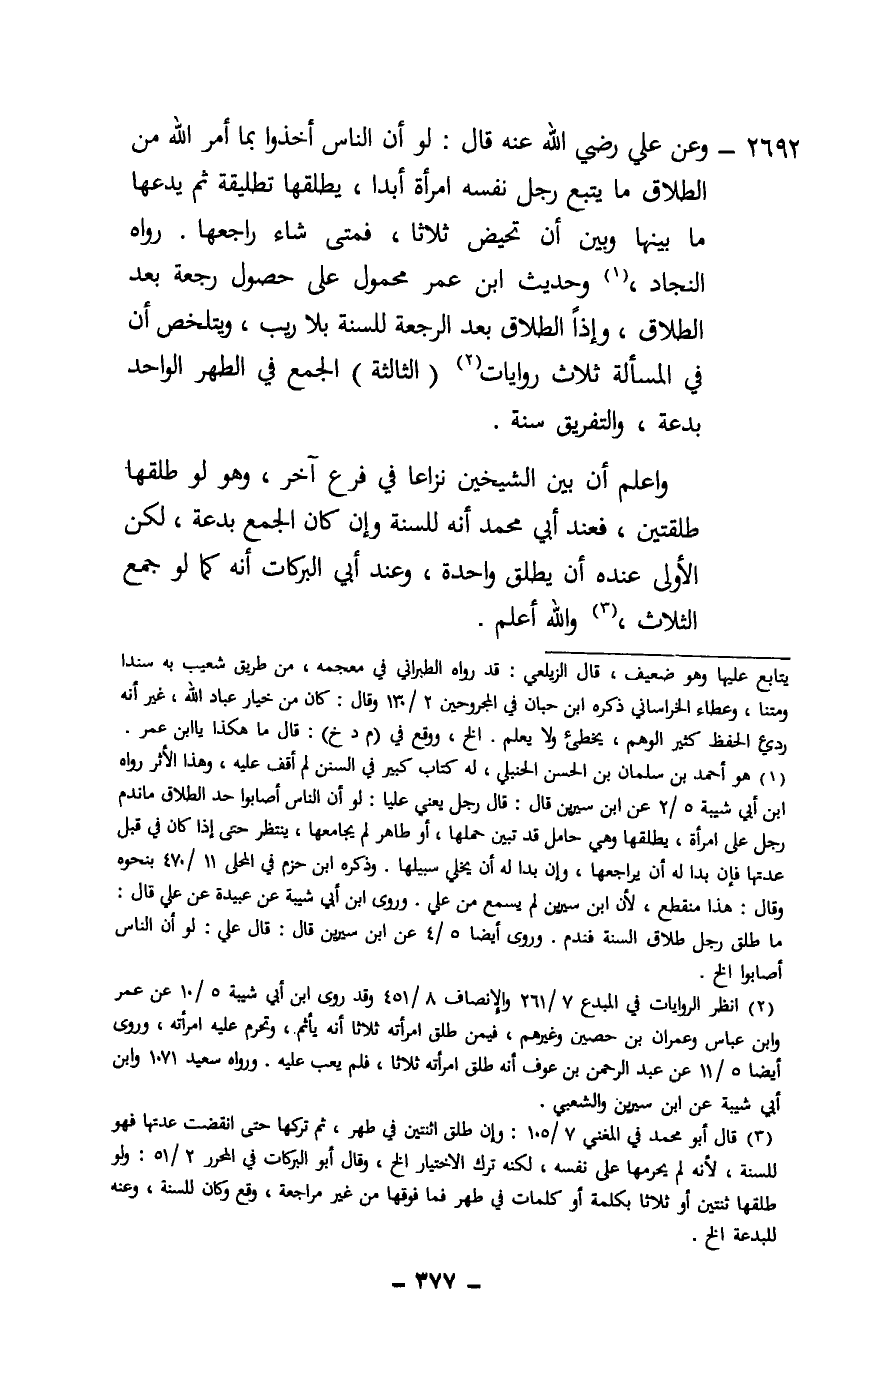 ٢٦٩٢ – وعن علي رضي الله عنه قال : لو أن الناس أخذوا بما أمر الله من
الطلاق ما يتبع رجل نفسه امرأة أبدا ، يطلقها تطليقة ثم يدعها
ما بينها وبين أن تحيض ثلاثا ، فمتى شاء راجعها . رواه
النجاد ،(١) وحديث ابن عمر محمول على حصول رجعة بعد
الطلاق ، وإذاً الطلاق بعد الرجعة للسنة بلا ريب ، ويتلخص أن
في المسألة ثلاث روايات(٢) ( الثالثة ) الجمع في الطهر الواحد
بدعة ، والتفريق سنة .
واعلم أن بين الشيخين نزاعا في فرع آخر ، وهو لو طلقها
طلقتين ، فعند أبي محمد أنه للسنة وإن كان الجمع بدعة ، لكن
الأولى عنده أن يطلق واحدة ، وعند أبي البركات أنه كما لو جمع
الثلاث ،(٣) والله أعلم .
يتابع عليها وهو ضعيف ، قال الزيلعي : قد رواه الطبراني في معجمه ، من طريق شعيب به سندا
ومتنا ، وعطاء الخراساني ذكره ابن حبان في المجروحين ٢ /١٣٠ وقال : كان من خيار عباد الله ، غير أنه
رديئ الحفظ كثير الوهم ، يخطئ ولا يعلم . الخ ، ووقع في (م د خ) : قال ما هكذا ياابن عمر .
(١) هو أحمد بن سلمان بن الحسن الحنبلي ، له كتاب كبير في السنن لم أقف عليه ، وهذا الأثر رواه
ابن أبي شيبة ٥ /٢ عن ابن سيرين قال : قال رجل يعني عليا : لو أن الناس أصابوا حد الطلاق ماندم
رجل على امرأة ، يطلقها وهي حامل قد تبين حملها ، أو طاهر لم يجامعها ، ينتظر حتى إذا كان في قبل
عدتها فإن بدا له أن يراجعها ، وإن بدا له أن يخلي سبيلها . وذكره ابن حزم في المحلى ١١ /٤٧٠ بنحوه
وقال : هذا منقطع ، لأن ابن سيرين لم يسمع من علي . وروى ابن أبي شيبة عن عبيدة عن علي قال :
ما طلق رجل طلاق السنة فندم . وروى أيضا ٥ /٤ عن ابن سيرين قال : قال علي : لو أن الناس
أصابوا الخ .
(٢) انظر الروايات في المبدع ٧ /٢٦١ والإنصاف ٨ /٤٥١ وقد روى ابن أبي شيبة ٥ /١٠ عن عمر
وابن عباس وعمران بن حصين وغيرهم ، فيمن طلق امرأته ثلاثا أنه يأثم ، وتحرم عليه امرأته ، وروى
أيضا ٥ /١١ عن عبد الرحمن بن عوف أنه طلق امرأته ثلاثا ، فلم يعب عليه . ورواه سعيد ١٠٧١ وابن
أبي شيبة عن ابن سيرين والشعبي .
(٣) قال أبو محمد في المغني ٧ /١٠٥ : وإن طلق اثنتين في طهر ، ثم تركها حتى انقضت عدتها فهو
للسنة ، لأنه لم يحرمها على نفسه ، لكنه ترك الاختيار الخ ، وقال أبو البركات في المحرر ٢ /٥١ : ولو
طلقها ثنتين أو ثلاثا بكلمة أو كلمات في طهر فما فوقها من غير مراجعة ، وقع وكان للسنة ، وعنه
للبدعة الخ .
– ٣٧٧ –